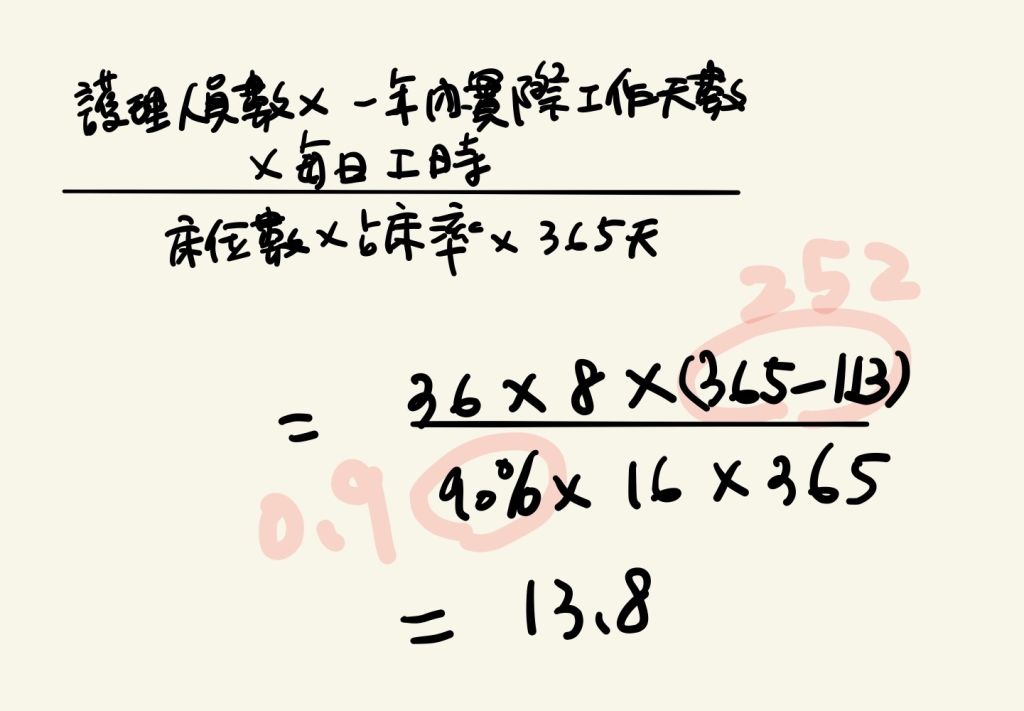 護理人員數 × 一年內實際工作天數
× 每日工時
床位數 × 占床率 × 365天
252
= 36 × 8 × (365-113)
0.9 90% × 16 × 365
= 13.8